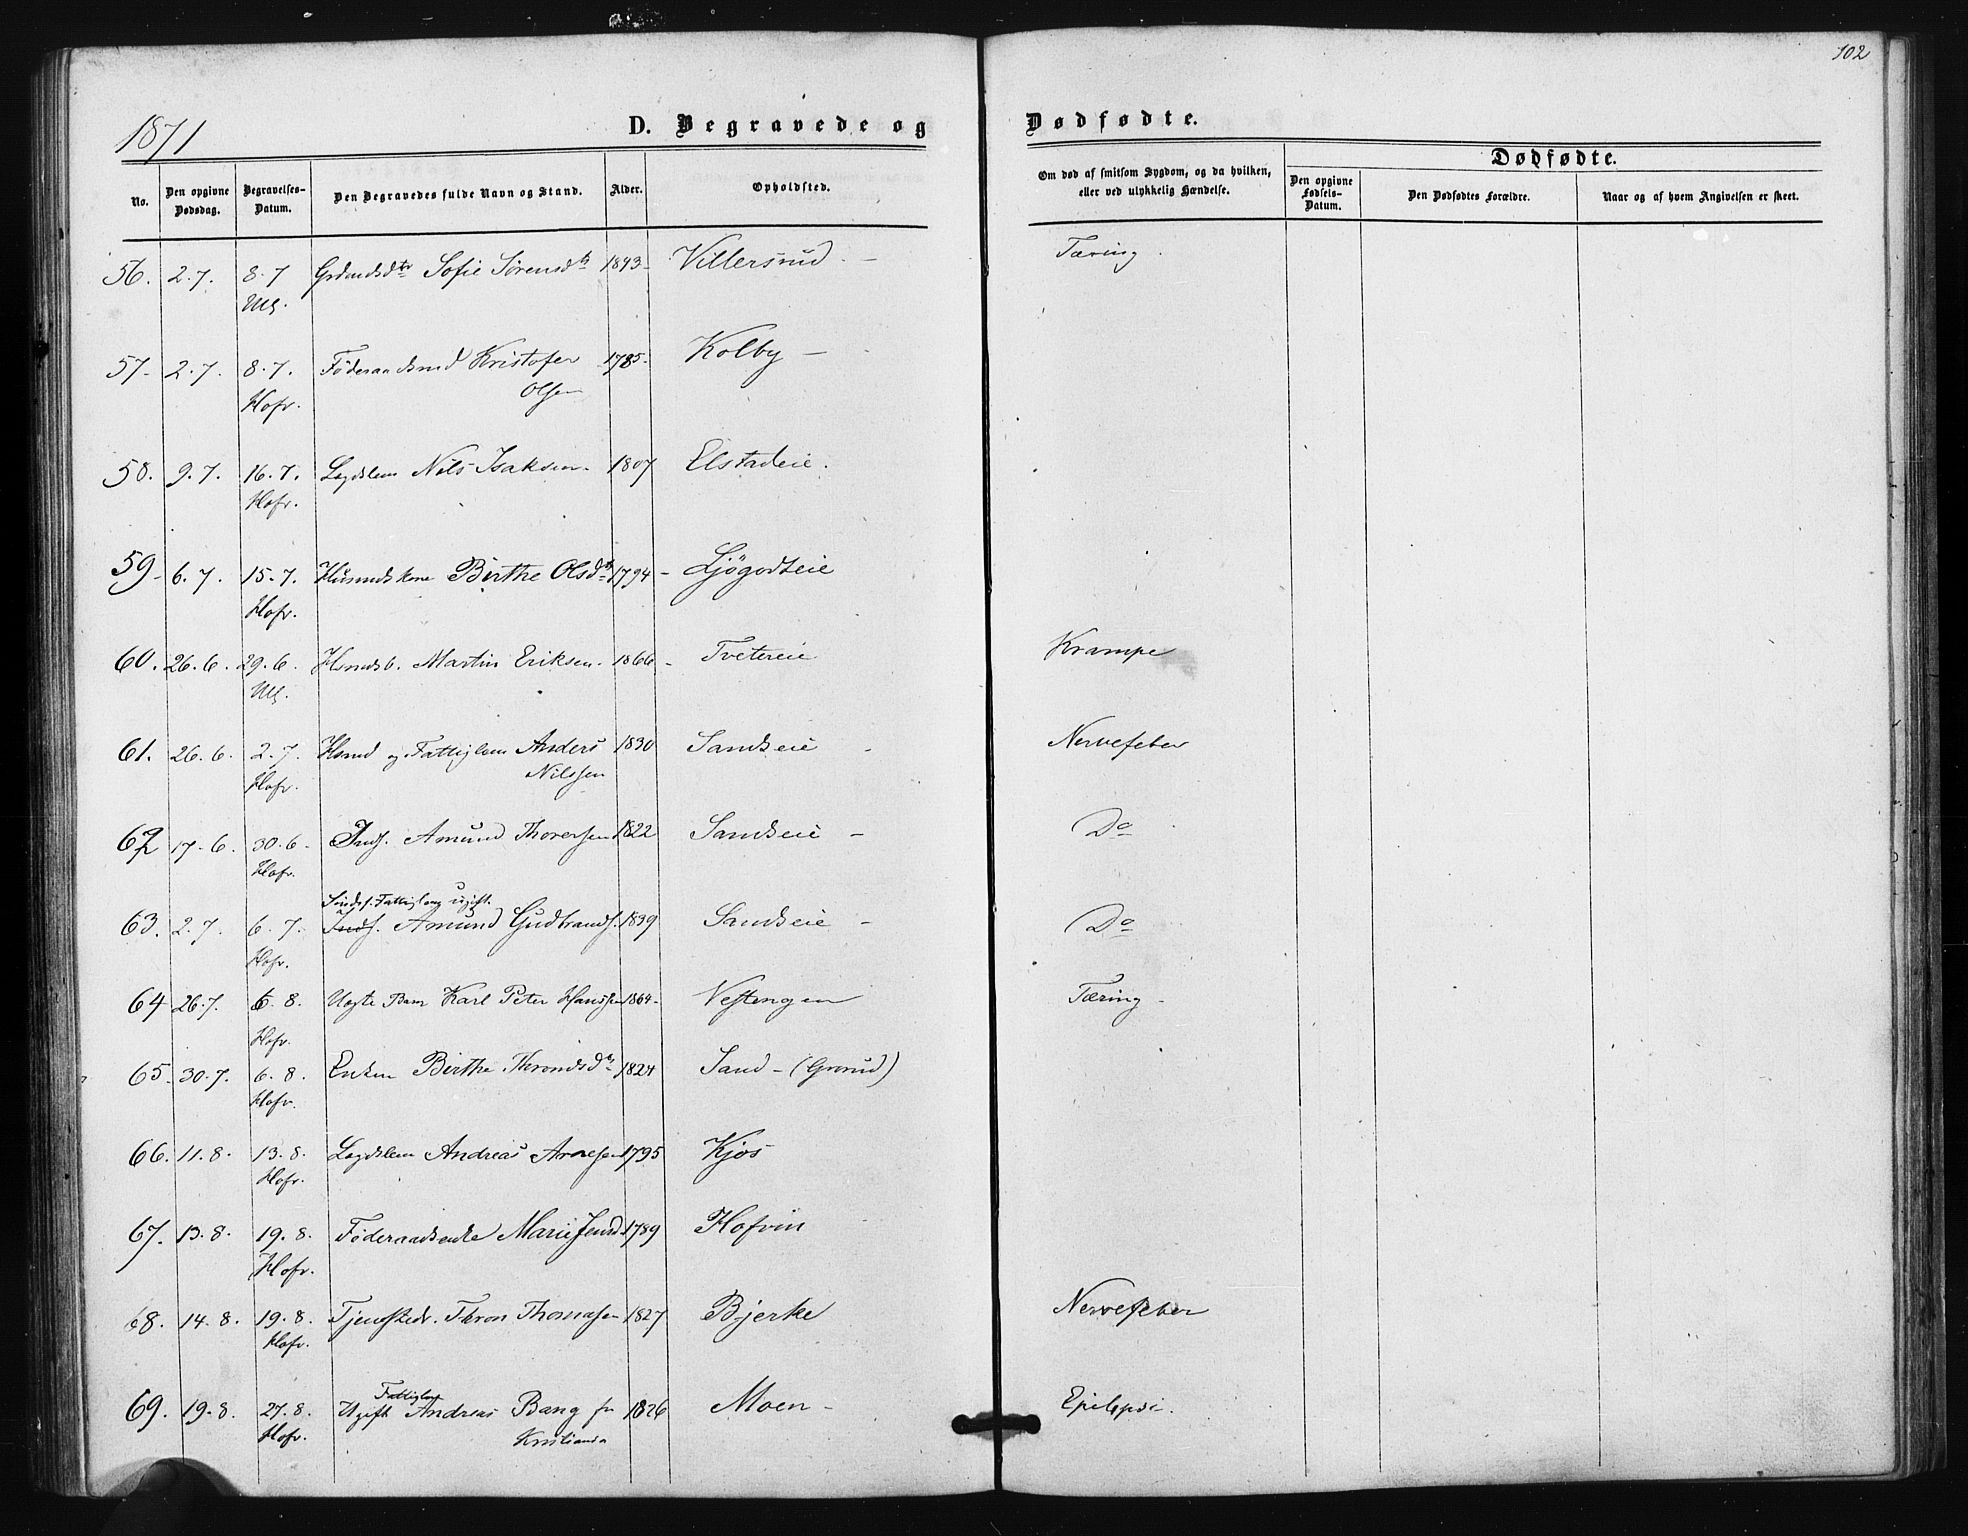 102
1871
D. Begravede og Dødfødte.
No.
Den opgivne Dødsdag.
Begravelses-Datum.
Den Begravedes fulde Navn og Stand.
Alder.
Opholdsted.
Om død af smitsom Sygdom, og da hvilken, eller ved ulykkelig Hændelse.
Dødfødte.
Den opgivne Fødsels-Datum.
Den Dødfødtes Forældre.
Naar og af hvem Angivelsen er skeet.
56. 2.7. 8.7 Grdmdsdtr Sofie Sørensdtr 1843 Villersrud - Tæring.
Ull.
57- 2.7. 8.7. Føderaadsmd Kristofer 1785- Kolby -
Hofv. Olsen
58. 9.7. 16.7. Lægdslem Nils Isaksen. 1807 Elstadeie.
Hofv.
59- 6.7. 15.7. Husmdskone Birthe Olsdtr 1794- Ljøgodteie
Hofv.
60. 26.6. 29.6. Hsmdsb. Martin Eriksen. 1866- Tvetereie Krampe
Ull.
61. 26.6. 2.7. Hsmd og Fattiglem Anders 1830 Sandseie - Nervefeber
Hofv. Nilssen
62 17-6. 30.6- Inds. Amund Thoresen 1822 Sandseie - Do
Hofv.
63. 2.7. 6.7. Inds. Amund Gudbrands. 1839 Sandseie - Do
Hofv.
64 26.7. 6.8. Uægte Barn Karl Peter Hanssen 1864- Vestengen Tæring -
Hofv.
65- 30.7. 6.8. Enken Birthe Throndsdtr 1824 Sand - (Grorud)
Hofv.
66. 11.8. 13.8. Lægdslem Andreas Arnesen 1795 Kjos
Hofv.
67. 13.8. 19.8. Føderaadsenke Marie Jensd. 1789 Hofvin
Hofv.
68. 14.8. 19.8. Tjenstedr. Thron Thomassen 1827 Bjerke Nervefeber
Hofv.
Fattiglem
69. 19.8. 27.8. Ugift Andreas Bang fra 1826 Moen - Epilepsi.
Hofv. Kristiania